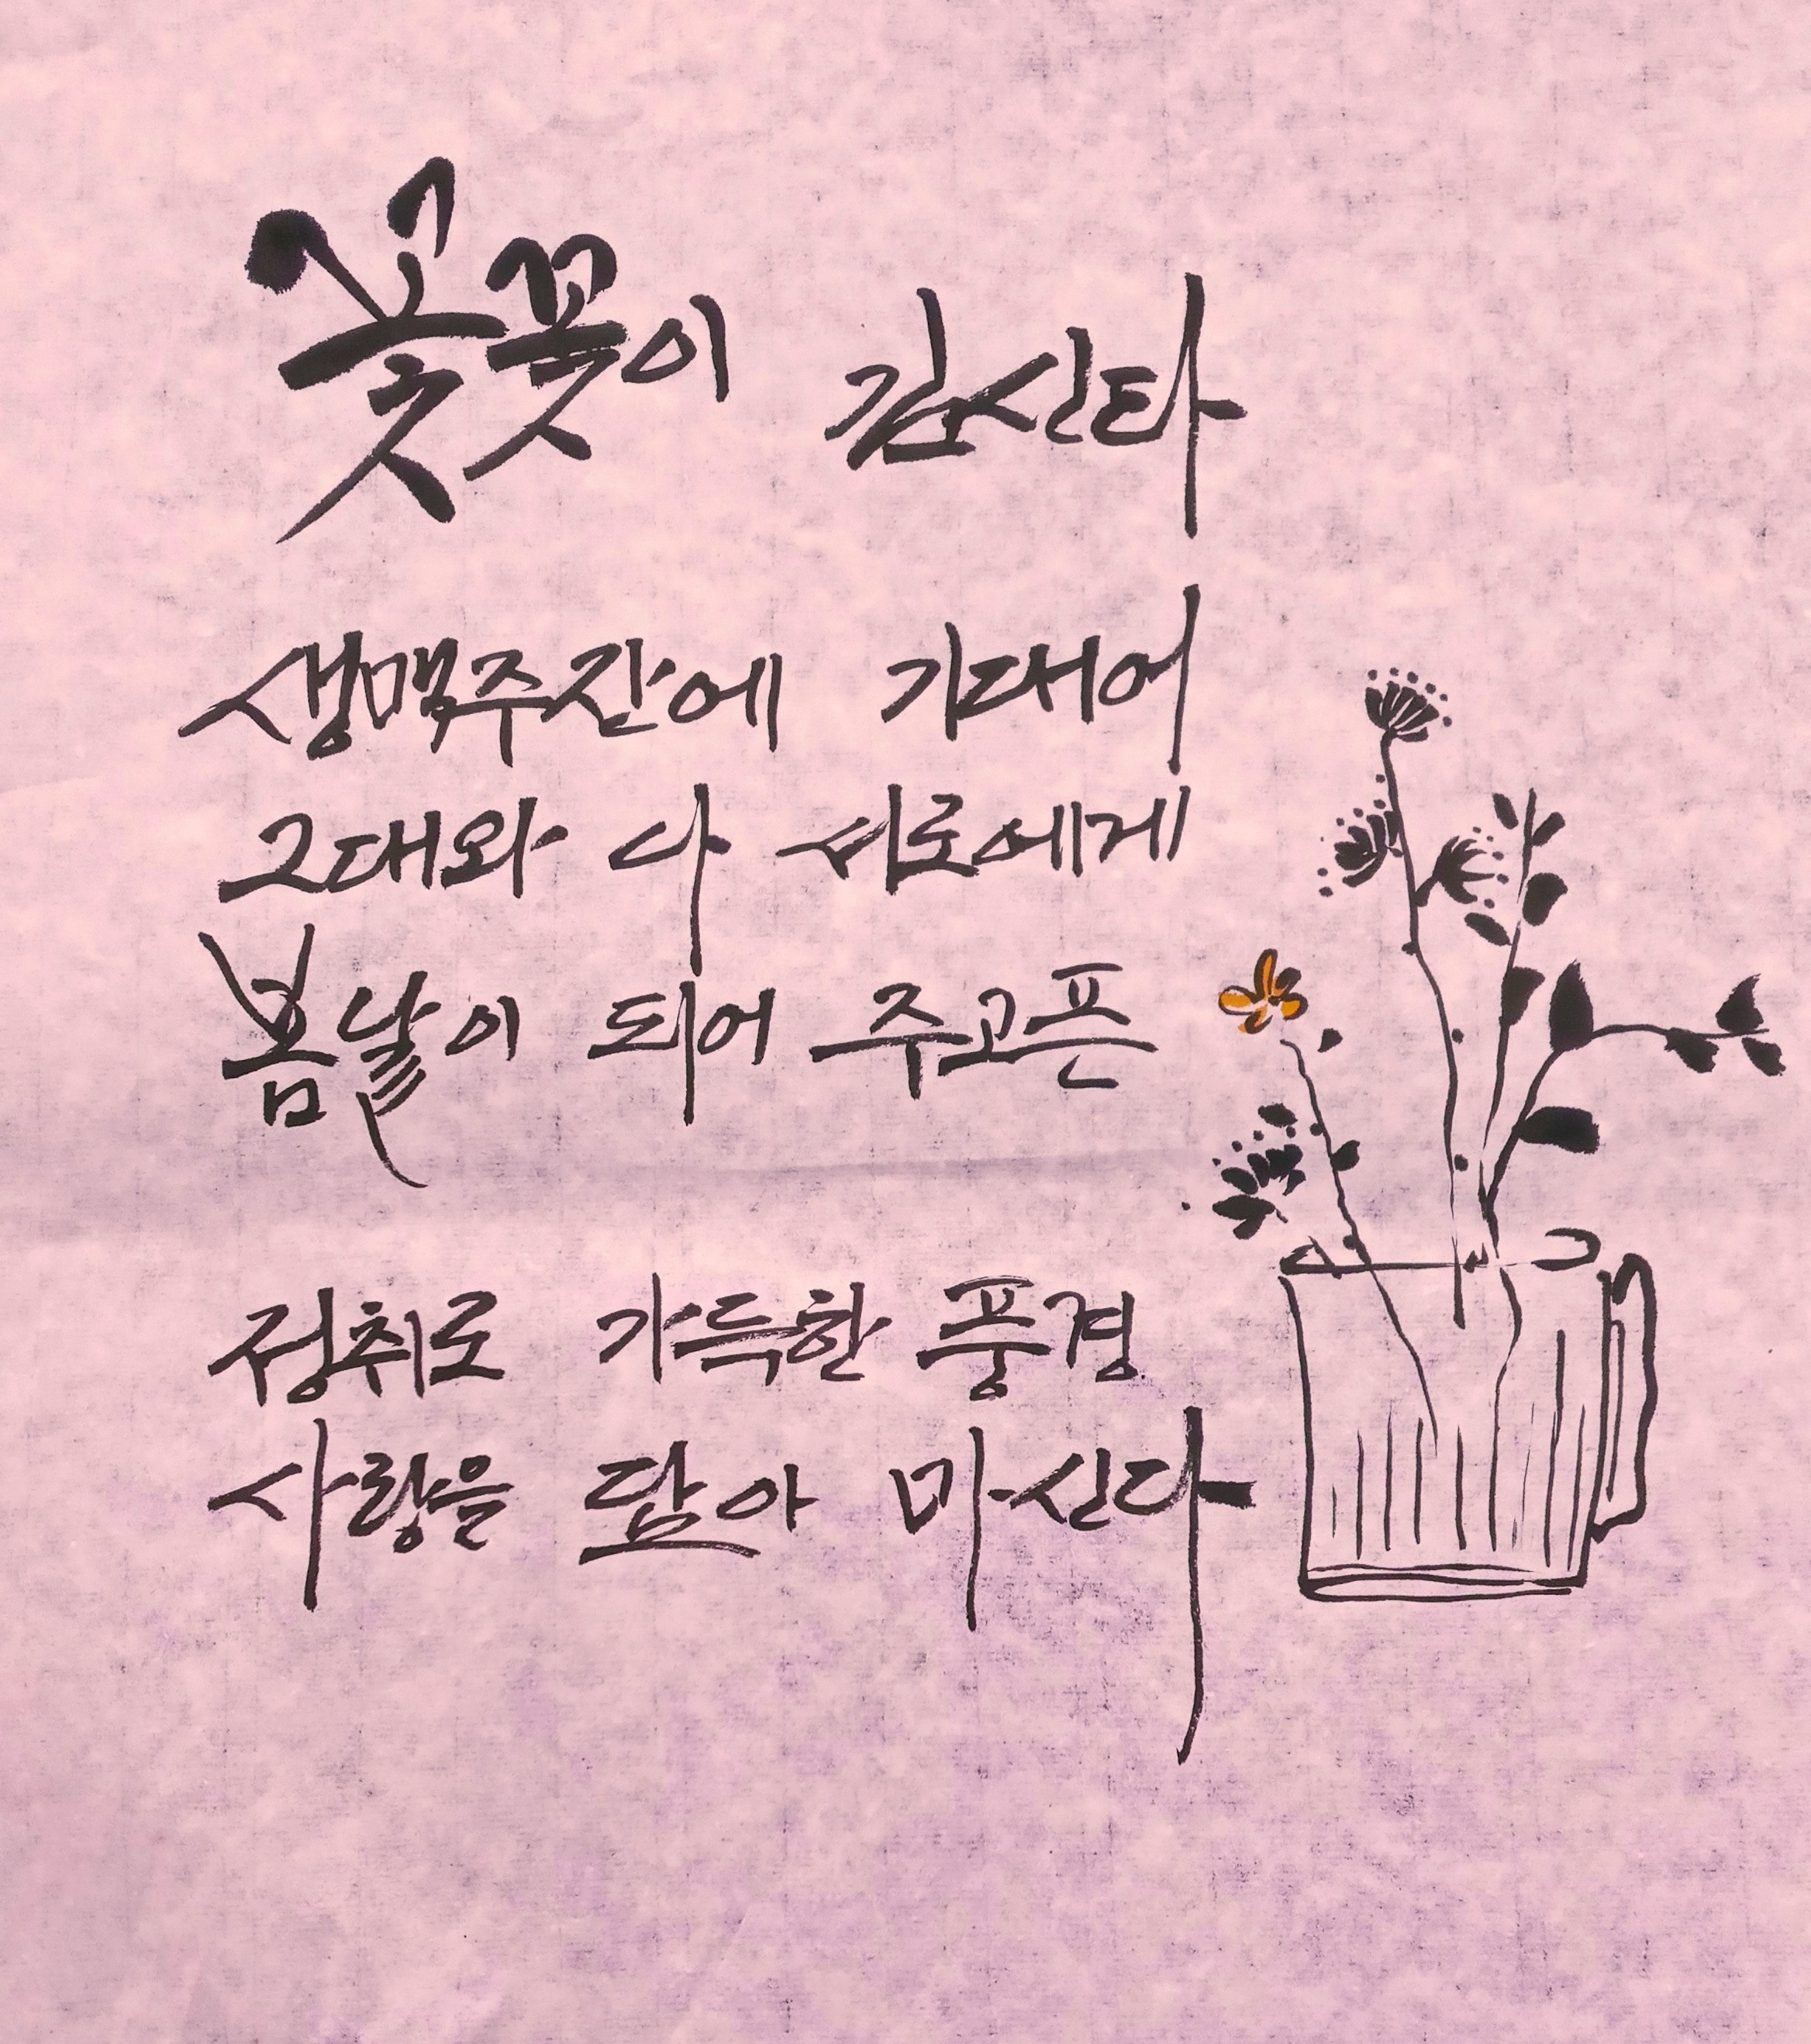 꽃꽂이 김신타
생맥주잔에 기대어
그대와 나 서로에게
봄날이 되어 주고픈
정취로 가득한 풍경
사랑을 담아 마신다